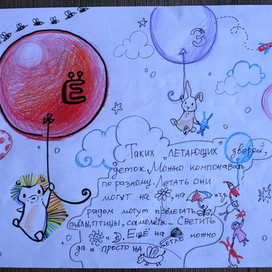 Ё
З
Таких "летающих" зверей,
деток можно компоновать
по разному. Летать они
могут на , на из
рядом могут пролетать
пчёлы, птицы, самолёт... Светить
и Ещё на можно
да и просто на
летать